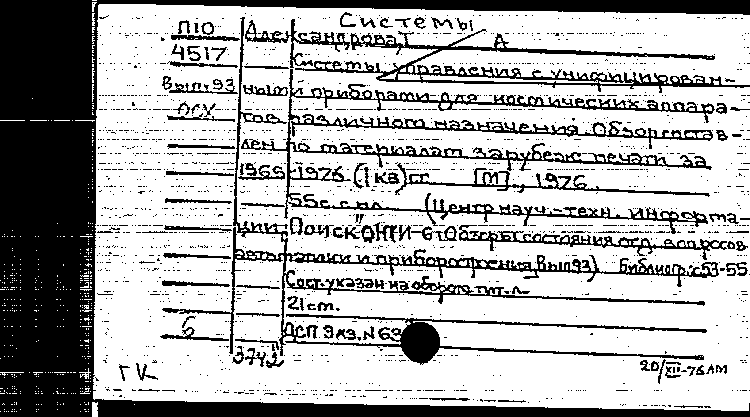 Системы
П10 Александрова, Т А
4517 Системы управления с унифицирован-
Вып. 93 ными приборами для космических аппара-
ОСХ тов различного назначения. Обзор состав-
лен по материалам зарубеж. печати за
1969-1976 (I кв) гг. [М]., 1976.
55с. с ил. (Центр науч.-техн. информа-
ции "Поиск" ОНТИ-6. Обзоры состояния отд. вопросов
автоматики и приборостроения, Вып 93) Библиогр: с 53-55
Сост. указан на обороте тит. л.
21 см.
Б ДСП Экз. N 63
3742
ГК 20/XII-76 ЛМ